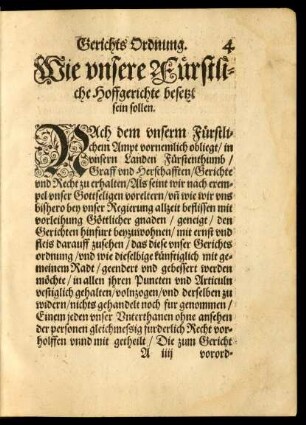 Gerichts Ordnung. 4
Wie vnsere Fürstli-
che Hoffgerichte besetzt
sein sollen.
NAch dem vnserm Fürstli-
chem Ampt vornemlich obliegt / in
vnsern Landen Fürstenthumb /
Graff vnd Herschafften / Gerichte
vnd Recht zu erhalten / Als seint wir nach exem-
pel vnser Gottseligen voreltern / vñ wie wir vns
bishero bey vnser Regierung allzeit beflissen mit
vorleihung Göttlicher gnaden / geneigt / den
Gerichten hinfurt beyzuwohnen / mit ernst vnd
fleis darauff zusehen / das diese vnser Gerichts
ordnung / vnd wie dieselbige künfftiglich mit ge-
meinem Radt / geendert vnd gebessert werden
möchte / in allen jhren Puncten vnd Articuln
vestiglich gehalten / volnzogen / vnd derselben zu
widern / nichts gehandelt noch fur genommen /
Einem jeden vnser Vnterthanen ohne ansehen
der personen gleichmessig furderlich Recht vor-
holffen vnnd mit getheilt / Die zum Gericht
A iiij vorord-